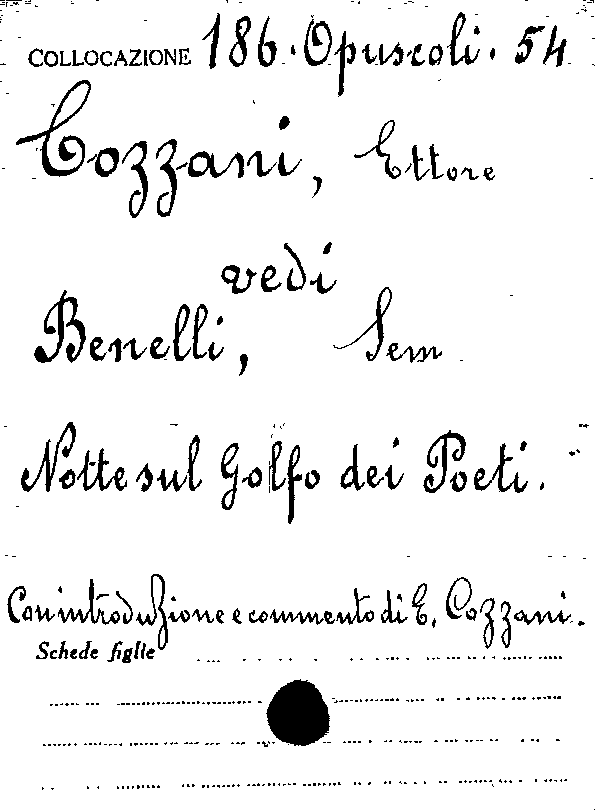 COLLOCAZIONE 186. Opuscoli. 54
Cozzani, Ettore
vedi
Benelli, Sem
Notte sul Golfo dei Poeti.
Con introduzione e commento di E. Cozzani.
Schede figlie